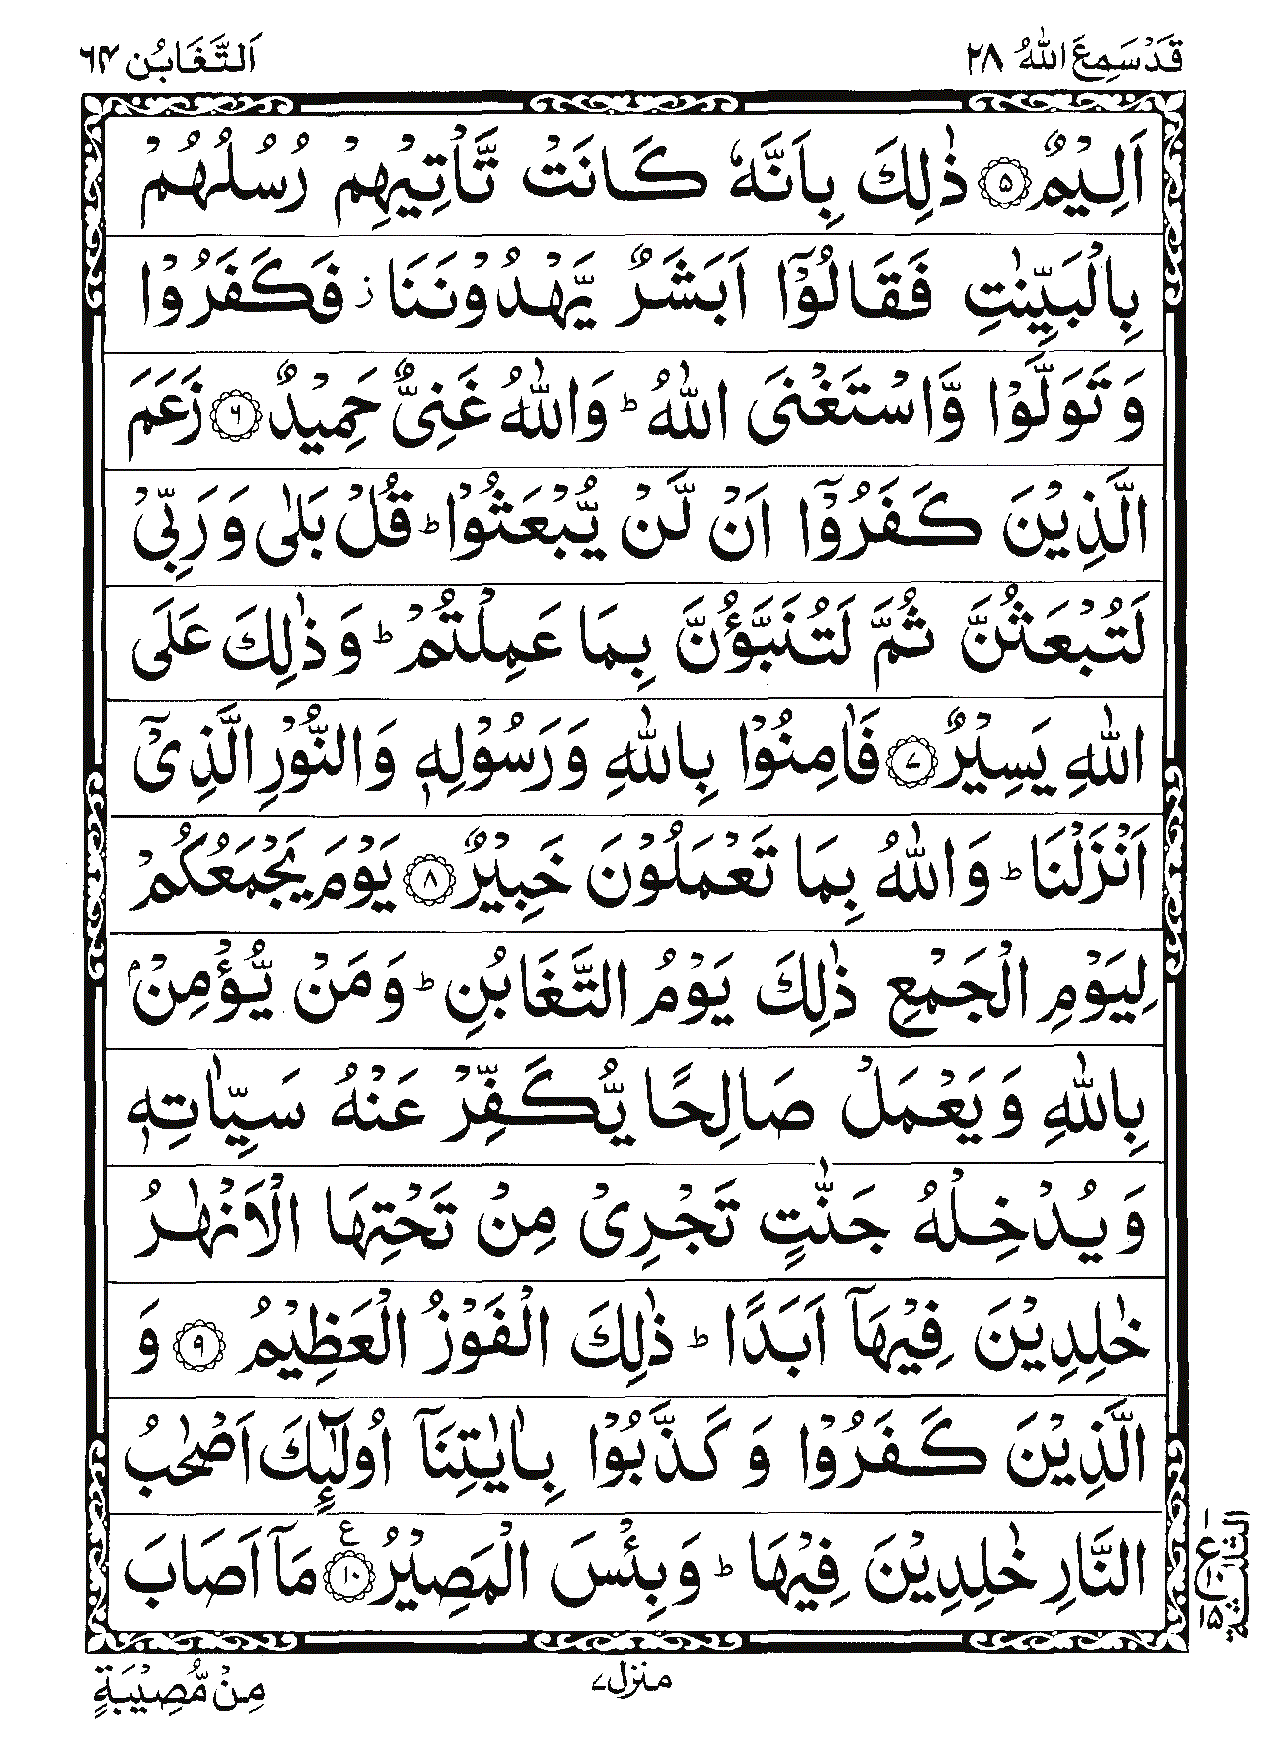 قَدْ سَمِعَ اللّٰهُ ٢٨
اَلتَّغَابُن ٦٤
اَلِيْمٌ ۝٥ ذٰلِكَ بِاَنَّهٗ كَانَتْ تَّاْتِيْهِمْ رُسُلُهُمْ
بِالْبَيِّنٰتِ فَقَالُوْۤا اَبَشَرٌ يَّهْدُوْنَنَا ز فَكَفَرُوْا
وَ تَوَلَّوْا وَّاسْتَغْنَى اللّٰهُ ؕ وَاللّٰهُ غَنِىٌّ حَمِيْدٌ ۝٦ زَعَمَ
الَّذِيْنَ كَفَرُوْۤا اَنْ لَّنْ يُّبْعَثُوْا ؕ قُلْ بَلٰى وَ رَبِّىْ
لَتُبْعَثُنَّ ثُمَّ لَتُنَبَّؤُنَّ بِمَا عَمِلْتُمْ ؕ وَ ذٰلِكَ عَلَى
اللّٰهِ يَسِيْرٌ ۝٧ فَاٰمِنُوْا بِاللّٰهِ وَ رَسُوْلِهٖ وَ النُّوْرِ الَّذِىْۤ
اَنْزَلْنَا ؕ وَ اللّٰهُ بِمَا تَعْمَلُوْنَ خَبِيْرٌ ۝٨ يَوْمَ يَجْمَعُكُمْ
لِيَوْمِ الْجَمْعِ ذٰلِكَ يَوْمُ التَّغَابُنِ ؕ وَ مَنْ يُّؤْمِنْۢ
بِاللّٰهِ وَ يَعْمَلْ صَالِحًا يُّكَفِّرْ عَنْهُ سَيِّاٰتِهٖ
وَ يُدْخِلْهُ جَنّٰتٍ تَجْرِىْ مِنْ تَحْتِهَا الْاَنْهٰرُ
خٰلِدِيْنَ فِيْهَاۤ اَبَدًا ؕ ذٰلِكَ الْفَوْزُ الْعَظِيْمُ ۝٩ وَ
الَّذِيْنَ كَفَرُوْا وَ كَذَّبُوْا بِاٰيٰتِنَاۤ اُولٰٓئِكَ اَصْحٰبُ
النَّارِ خٰلِدِيْنَ فِيْهَا ؕ وَ بِئْسَ الْمَصِيْرُ ۝١٠ ع مَاۤ اَصَابَ
الثلٰثة
١
ع
١٠
١٥
منزل ٧
مِنْ مُّصِيْبَةٍ